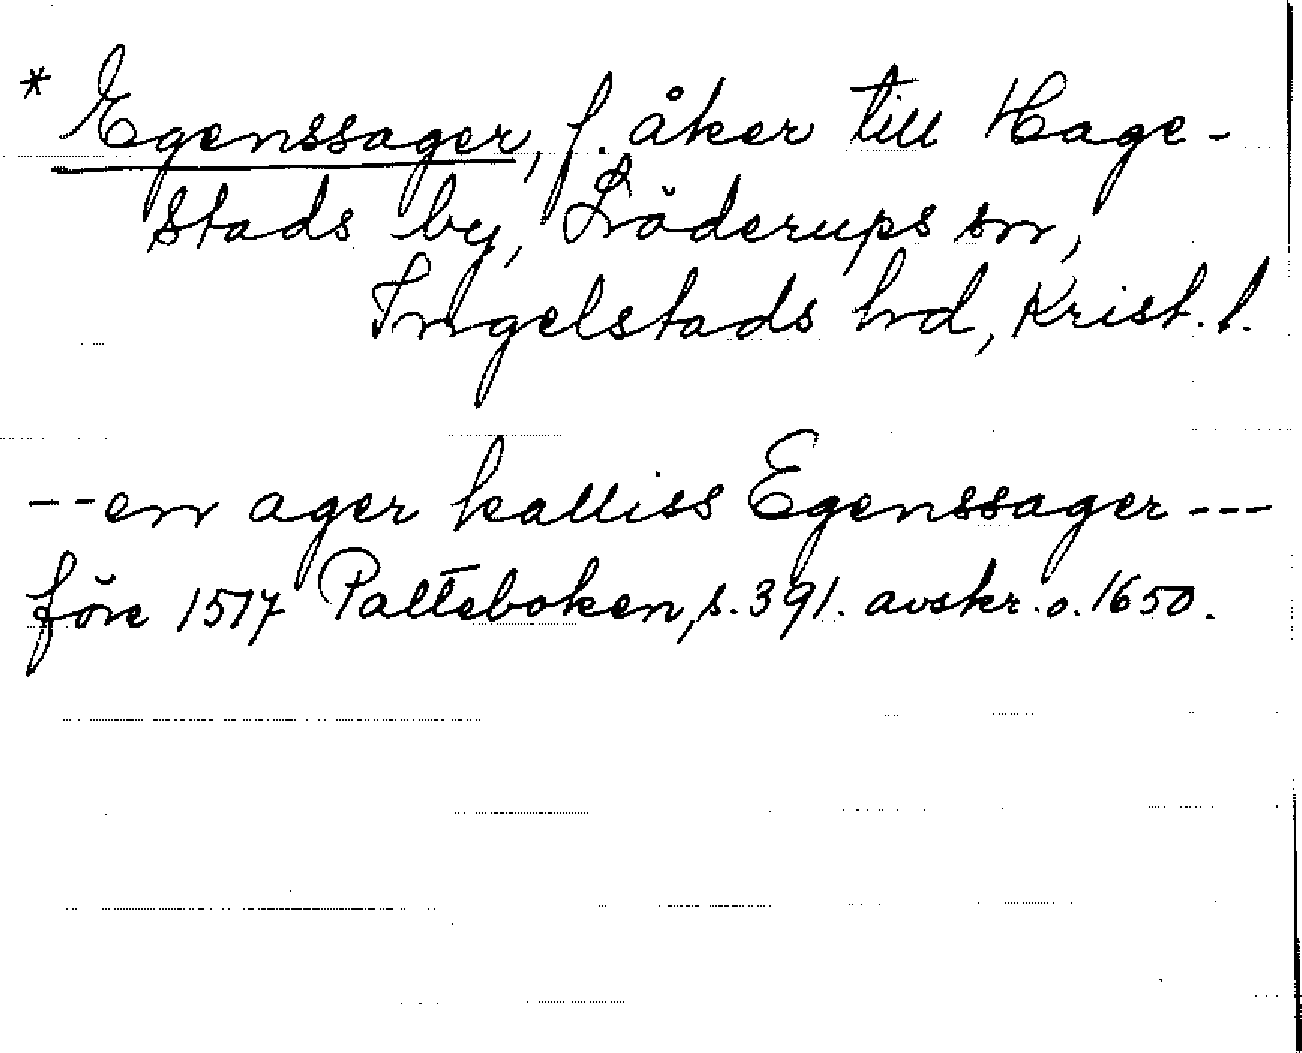 * Egenssager, f. åker till Hage-
stads by, Löderups sn,
Ingelstads hd, Krist. l.
--en ager kalliss Egenssager---
före 1517 Palteboken, s. 391. avskr. o. 1650.